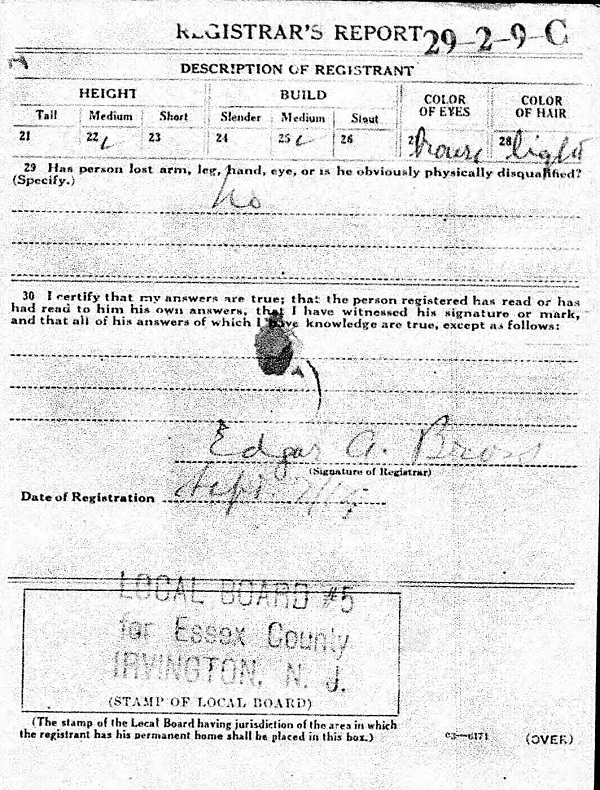 REGISTRAR'S REPORT 29-2-9-C
DESCRIPTION OF REGISTRANT
HEIGHT BUILD COLOR OF EYES COLOR OF HAIR
Tall Medium Short Slender Medium Stout
21 22 ✓ 23 24 25 ✓ 26 27 brown 28 light
29 Has person lost arm, leg, hand, eye, or is he obviously physically disqualified?
(Specify.)
No
30 I certify that my answers are true; that the person registered has read or has
had read to him his own answers, that I have witnessed his signature or mark,
and that all of his answers of which I have knowledge are true, except as follows:
Edgar A.
(Signature of Registrar)
Date of Registration Sept
LOCAL BOARD #5
for Essex County
IRVINGTON, N. J.
(STAMP OF LOCAL BOARD)
(The stamp of the Local Board having jurisdiction of the area in which
the registrant has his permanent home shall be placed in this box.)
03—6171 (OVER)